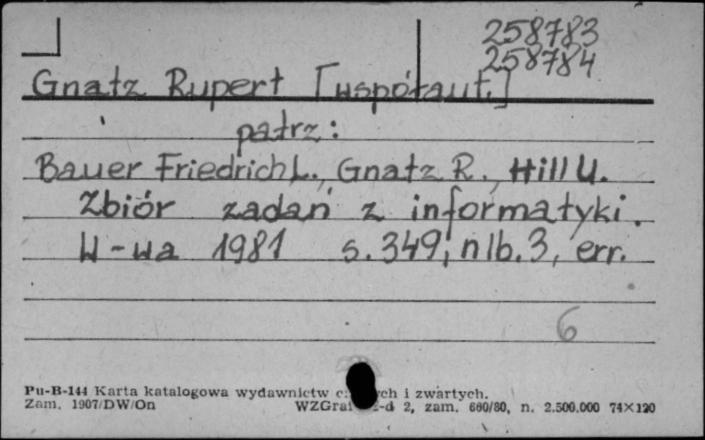 258783
258784
Gnatz Rupert [współaut.]
patrz:
Bauer Friedrich L., Gnatz R., Hill U.
Zbiór zadań z informatyki.
W-wa 1981 s. 349, nlb. 3, err.
6
Pu-B-144 Karta katalogowa wydawnictw i zwartych.
Zam. 1907/DW/On WZGraf 2, zam. 660/80, n. 2.500.000 74×120